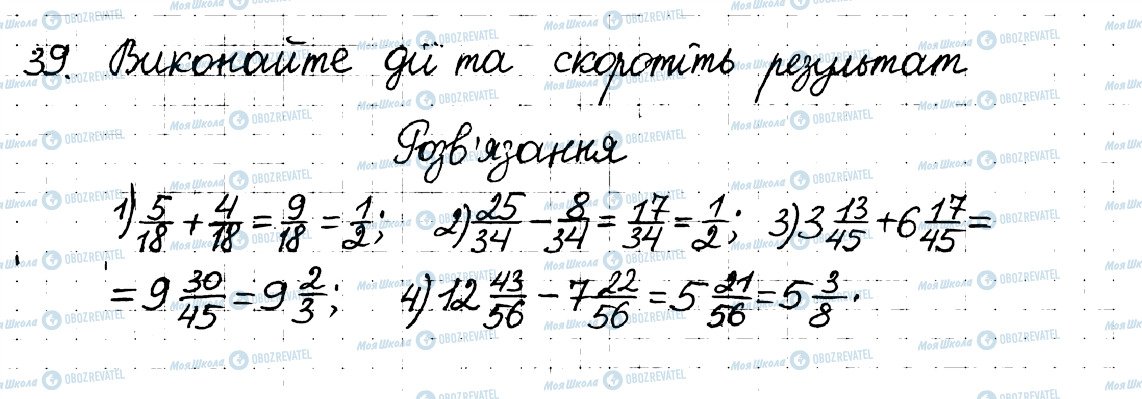 39. Виконайте дії та скоротіть результат
Розв'язання
1) 5/18 + 4/18 = 9/18 = 1/2; 2) 25/34 - 8/34 = 17/34 = 1/2; 3) 3 13/45 + 6 17/45 =
= 9 30/45 = 9 2/3; 4) 12 43/56 - 7 22/56 = 5 21/56 = 5 3/8.